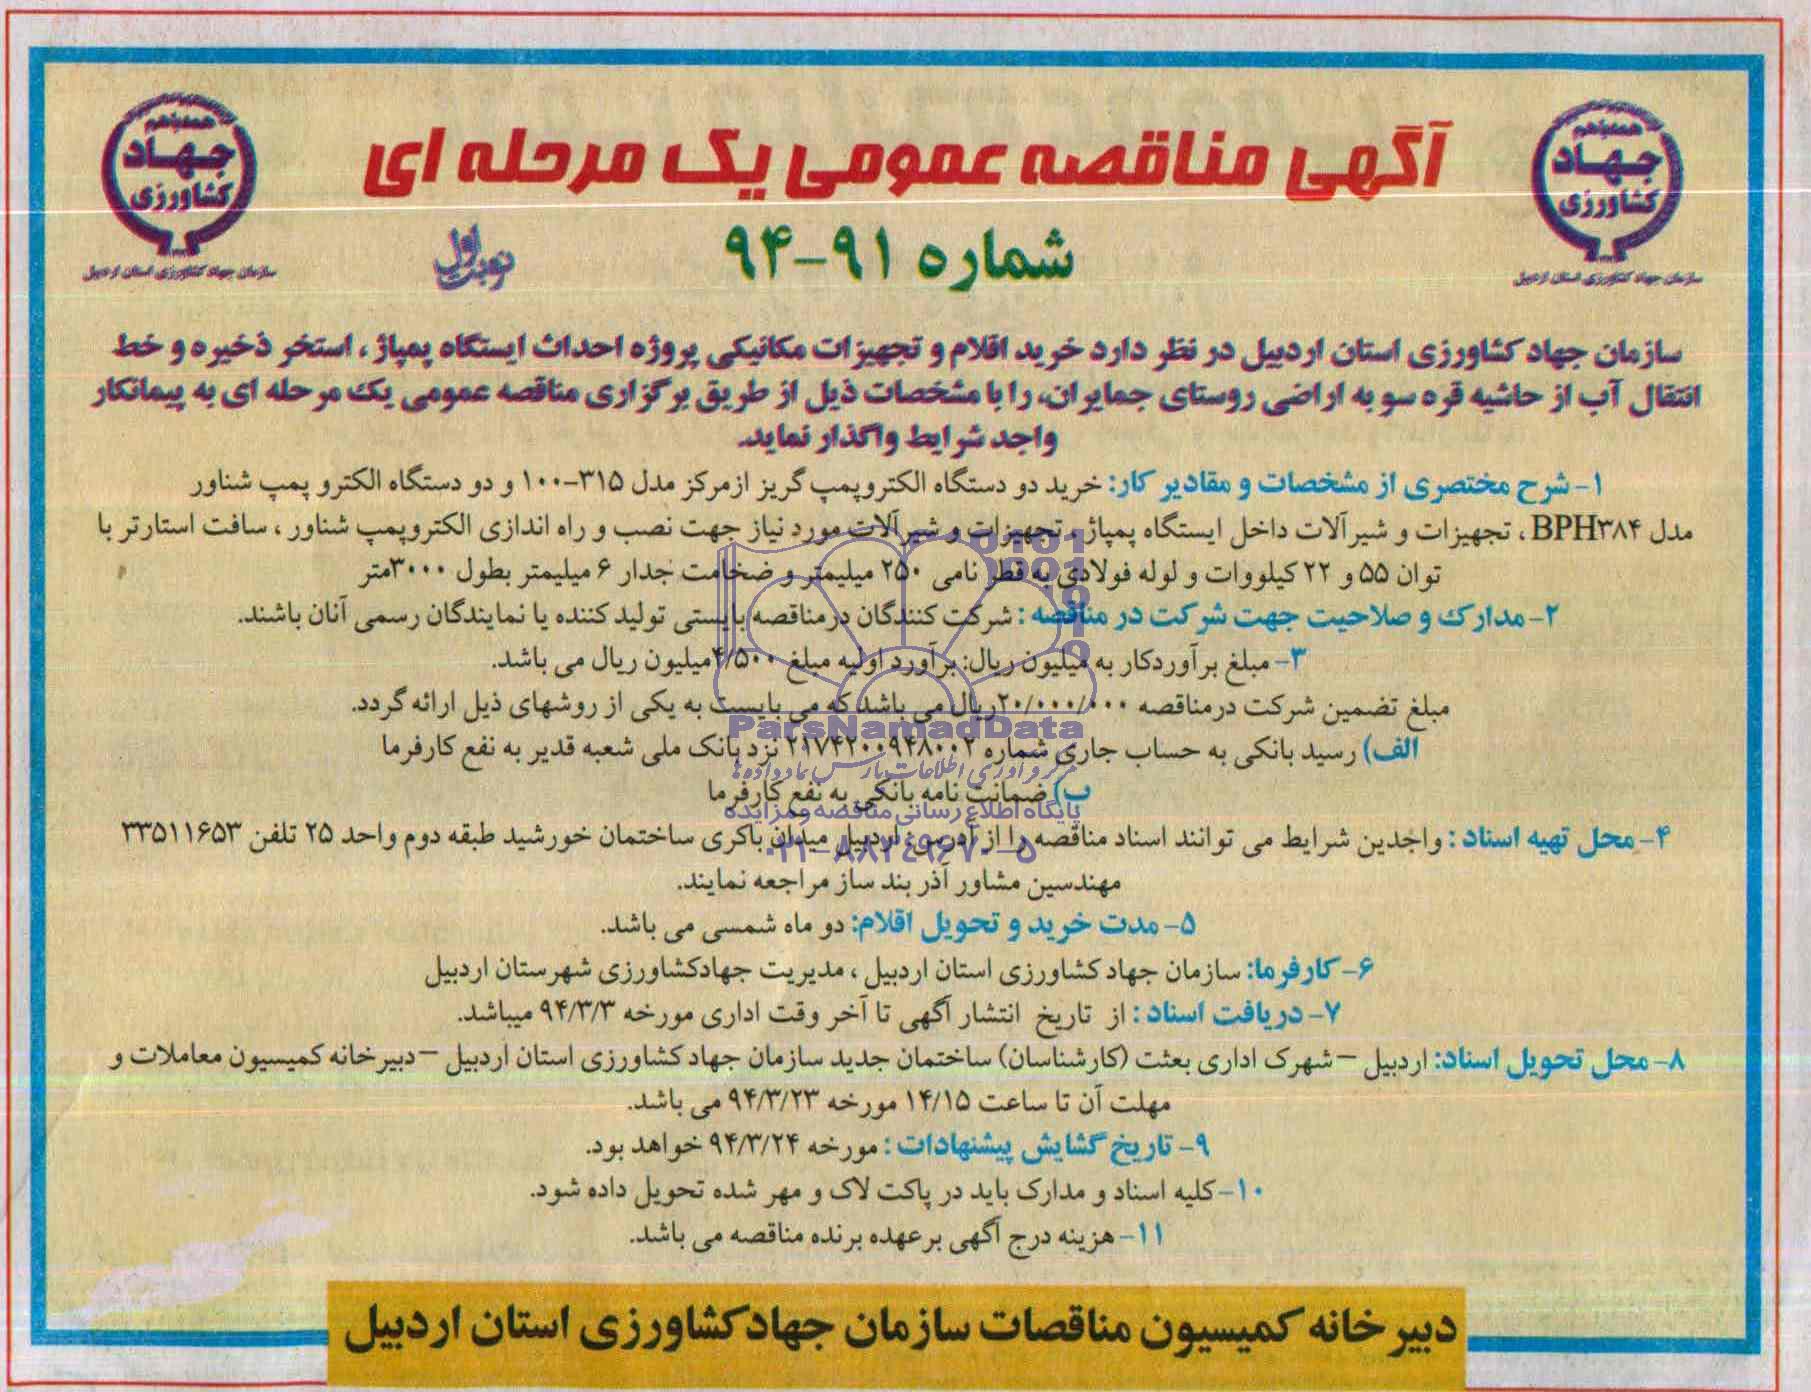 همه باهم
جهاد
کشاورزی
سازمان جهاد کشاورزی استان اردبیل
همه باهم
جهاد
کشاورزی
سازمان جهاد کشاورزی استان اردبیل
آگهی مناقصه عمومی یک مرحله ای
شماره ۹۱-۹۴
نوبت اول
سازمان جهاد کشاورزی استان اردبیل در نظر دارد خرید اقلام و تجهیزات مکانیکی پروژه احداث ایستگاه پمپاژ، استخر ذخیره و خط
انتقال آب از حاشیه قره سو به اراضی روستای جمایران، را با مشخصات ذیل از طریق برگزاری مناقصه عمومی یک مرحله ای به پیمانکار
واجد شرایط واگذار نماید.
۱- شرح مختصری از مشخصات و مقادیر کار: خرید دو دستگاه الکتروپمپ گریز ازمرکز مدل ۳۱۵-۱۰۰ و دو دستگاه الکترو پمپ شناور
مدل BPH۳۸۴ ، تجهیزات و شیرآلات داخل ایستگاه پمپاژ ، تجهیزات و شیرآلات مورد نیاز جهت نصب و راه اندازی الکتروپمپ شناور ، سافت استارتر با
توان ۵۵ و ۲۲ کیلووات و لوله فولادی به قطر نامی ۲۵۰ میلیمتر و ضخامت جدار ۶ میلیمتر بطول ۳۰۰۰متر
۲- مدارک و صلاحیت جهت شرکت در مناقصه : شرکت کنندگان درمناقصه بایستی تولید کننده یا نمایندگان رسمی آنان باشند.
۳- مبلغ برآوردکار به میلیون ریال: برآورد اولیه مبلغ ۴/۵۰۰میلیون ریال می باشد.
مبلغ تضمین شرکت درمناقصه ۲۰/۰۰۰/۰۰۰ریال می باشد که می بایست به یکی از روشهای ذیل ارائه گردد.
الف) رسید بانکی به حساب جاری شماره ۲۱۷۴۲۰۰۹۴۸۰۰۲ نزد بانک ملی شعبه قدیر به نفع کارفرما
ب) ضمانت نامه بانکی به نفع کارفرما
۴- محل تهیه اسناد : واجدین شرایط می توانند اسناد مناقصه را از آدرس : اردبیل میدان باکری ساختمان خورشید طبقه دوم واحد ۲۵ تلفن ۳۳۵۱۱۶۵۳
مهندسین مشاور آذر بند ساز مراجعه نمایند.
۵- مدت خرید و تحویل اقلام: دو ماه شمسی می باشد.
۶- کارفرما: سازمان جهاد کشاورزی استان اردبیل ، مدیریت جهادکشاورزی شهرستان اردبیل
۷- دریافت اسناد : از تاریخ انتشار آگهی تا آخر وقت اداری مورخه ۹۴/۳/۳ میباشد.
۸- محل تحویل اسناد: اردبیل – شهرک اداری بعثت (کارشناسان) ساختمان جدید سازمان جهاد کشاورزی استان اردبیل – دبیرخانه کمیسیون معاملات و
مهلت آن تا ساعت ۱۴/۱۵ مورخه ۹۴/۳/۲۳ می باشد.
۹- تاریخ گشایش پیشنهادات : مورخه ۹۴/۳/۲۴ خواهد بود.
۱۰- کلیه اسناد و مدارک باید در پاکت لاک و مهر شده تحویل داده شود.
۱۱- هزینه درج آگهی برعهده برنده مناقصه می باشد.
دبیرخانه کمیسیون مناقصات سازمان جهادکشاورزی استان اردبیل
ParsNamadData
مرکز فرآوری اطلاعات پارس نماد داده ها
پایگاه اطلاع رسانی مناقصه و مزایده
۰۲۱-۸۸۳۴۹۶۷۰-۵